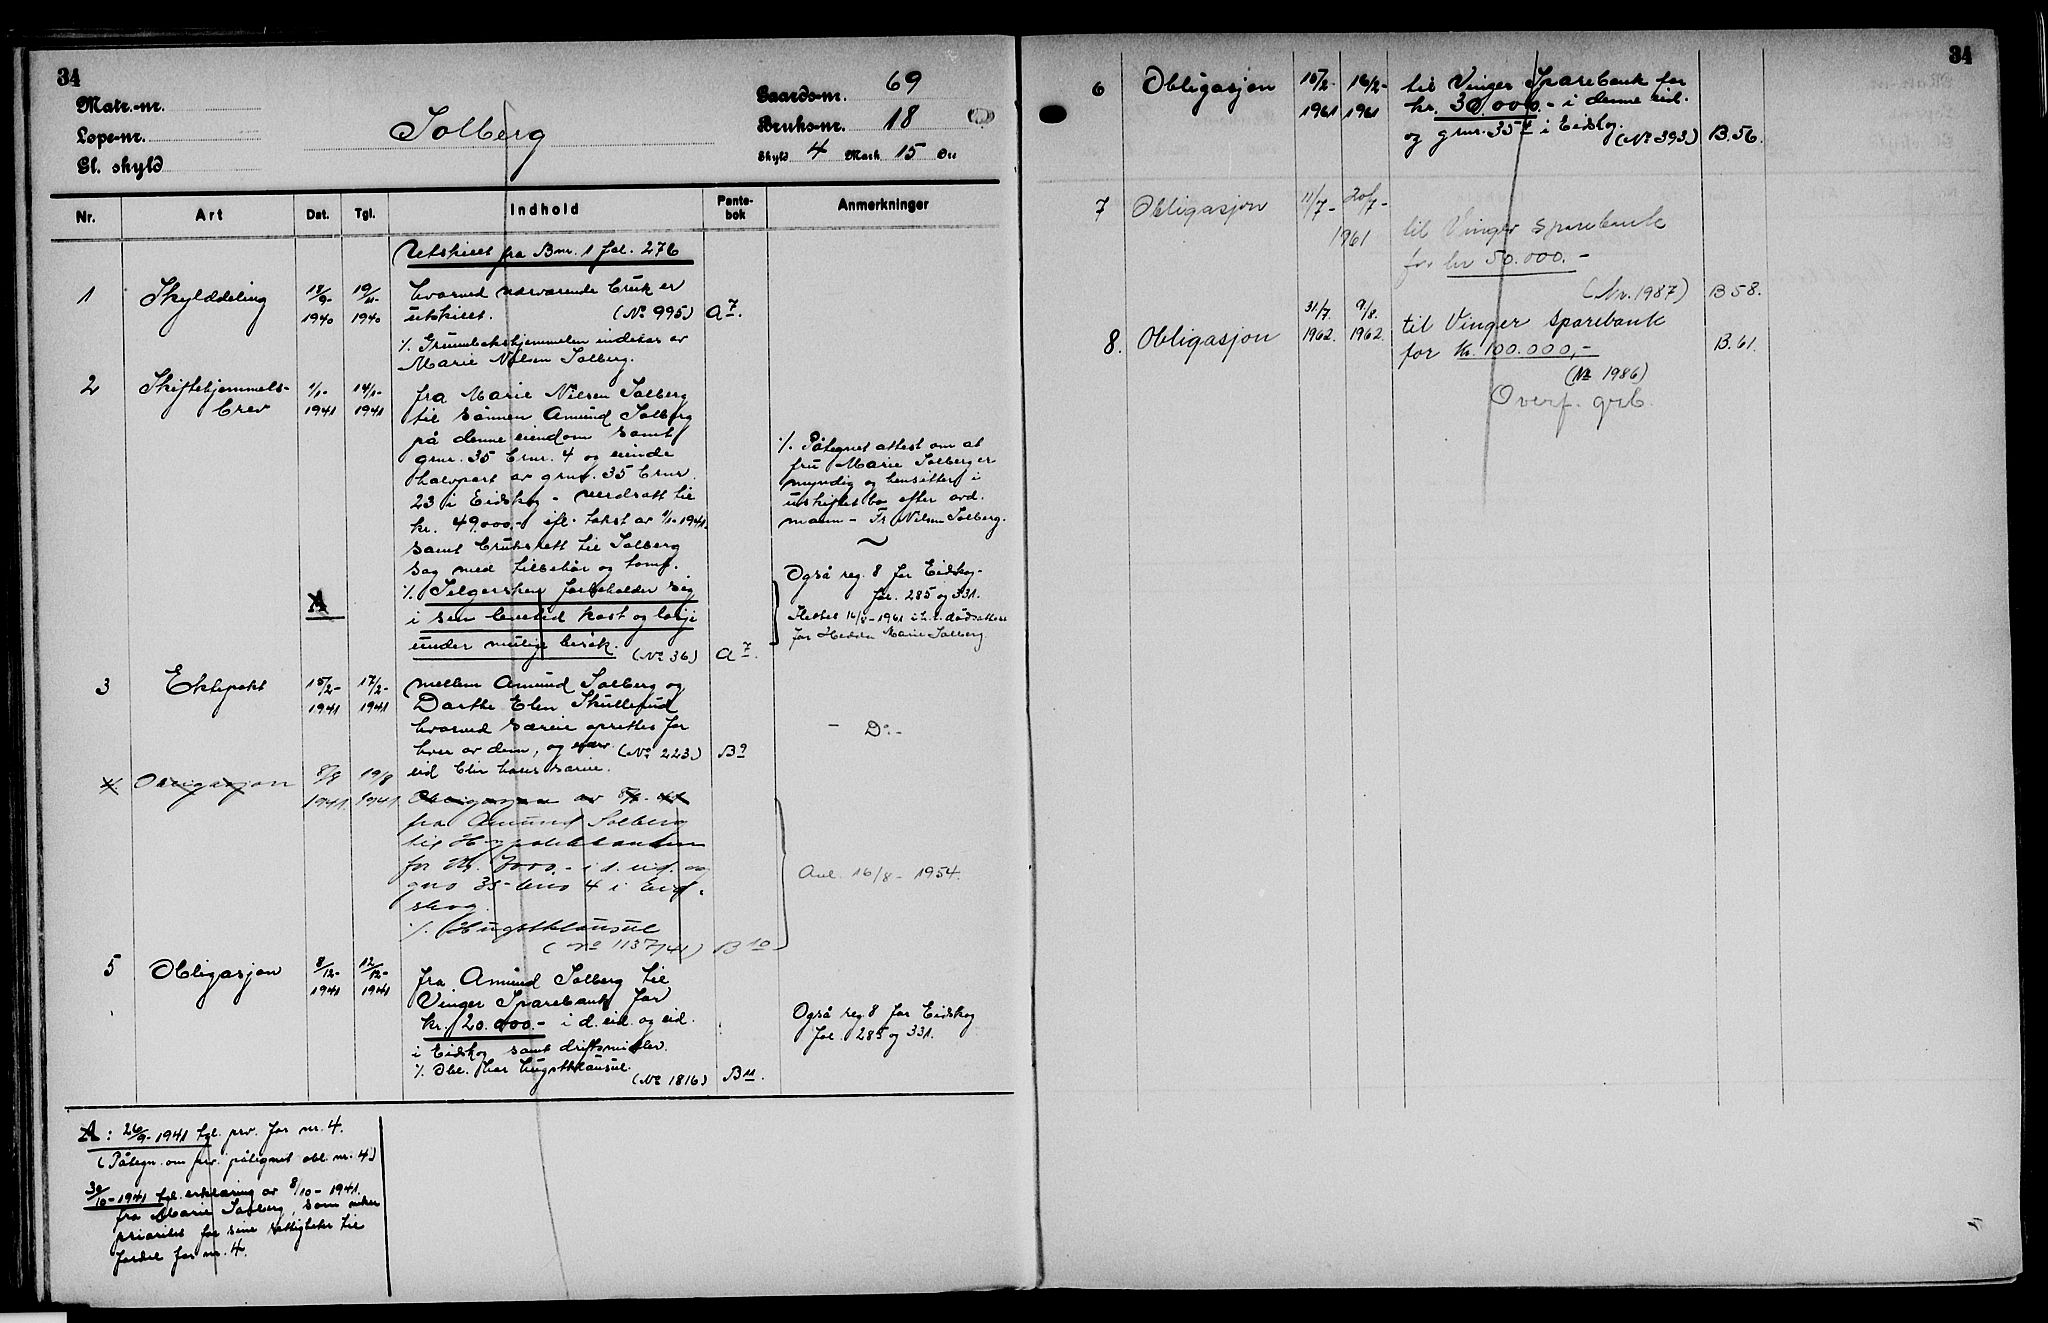 34
Matr.-nr.
Løpe-nr.
Gl. skyld
Solberg
Gaards-nr. 69
Bruks-nr. 18
Skyld 4 Mark 15 Øre
Nr. Art Dat. Tgl. Indhold Pante-bok Anmerkninger
Utskilt fra Bnr. 1 fol. 276
1 Skylddeling 18/9- 1940 19/11- 1940 hvorved nærværende bruk er
utskilt. (No 995) A 7.
·/. Grunnbokshjemmelen indehas av
Marie Nilsen Solberg.
2 Skiftehjemmels-
brev 1/1- 1941 14/1- 1941 fra Marie Nilsen Solberg
til sønnen Amund Solberg
på denne eiendom samt
gnr. 35 bnr. 4 og eiende
halvpart av gnr. 35 bnr.
23 i Eidskog - verdsatt til
kr. 49000.- ifl. takst av 1/1-1941
samt bruksrett til Solberg
sag med tilbehør og tomt.
·/. Selgersken forbeholder sig
i sin levetid kost og losje
under mulige besøk.
(No 36) A 7.
A
·/. Påtegnet attest om at
fru Marie Solberg er
myndig og hensitter i
uskiftet bo efter avd.
mann - Fr. Nilsen Solberg.
Også reg. 8 for Eidskog-
fol. 285 og 331.
Slettet 16/8-1961 i.h.t. dødsattest
for Hedda Marie Solberg
3 Ektepakt 15/2- 1941 17/2- 1941 mellem Amund Solberg og
Dorthe Elen Skullerud
hvorved særeie oprettes for
hver av dem, og nærv. (No 223) B 9
eid blir hans særeie.
- Do -
4. Obligasjon 8/8 1941 19/8 1941 Obligasjon av 8/8-41
fra Amund Solberg
til Hypotekbanken
for kr. 7000.- i d. eid. og
gno 35 bno 4 i Eid-
skog.
·/. Hugstklausul
(No 1137/41) B 10
Avl. 16/8-1954.
5 Obligasjon 8/12- 1941 12/12- 1941 fra Amund Solberg til
Vinger Sparebank for
kr. 20.000.- i d. eid. og eid.
i Eidskog samt driftsmidler.
·/. Obl. har hugstklausul.
(No 1816) B 11.
Også reg. 8 for Eidskog
fol. 285 og 331.
A: 26/9-1941 tgl. prv. for nr. 4.
(Påtegn. om prv. påtegnet obl. nr. 4)
30/10-1941 tgl. erklæring av 8/10-1941.
fra Marie Solberg, som viker
prioritet for sine rettigheter til
fordel for nr. 4.
34
6 Obligasjon 15/2- 1961 16/2- 1961 til Vinger Sparebank for
kr. 30.000.- i denne eid.
og gnr. 35 4 i Eidskog.
(No 393) B. 56.
7 Obligasjon 11/7- 20/7- 1961 til Vinger sparebank
for kr 50.000.-
(Nr. 1987) B 58.
8. Obligasjon 31/7. 1962. 9/8. 1962. til Vinger sparebank
for kr. 100.000,-
(No 1986) B. 61.
Overf. grb.